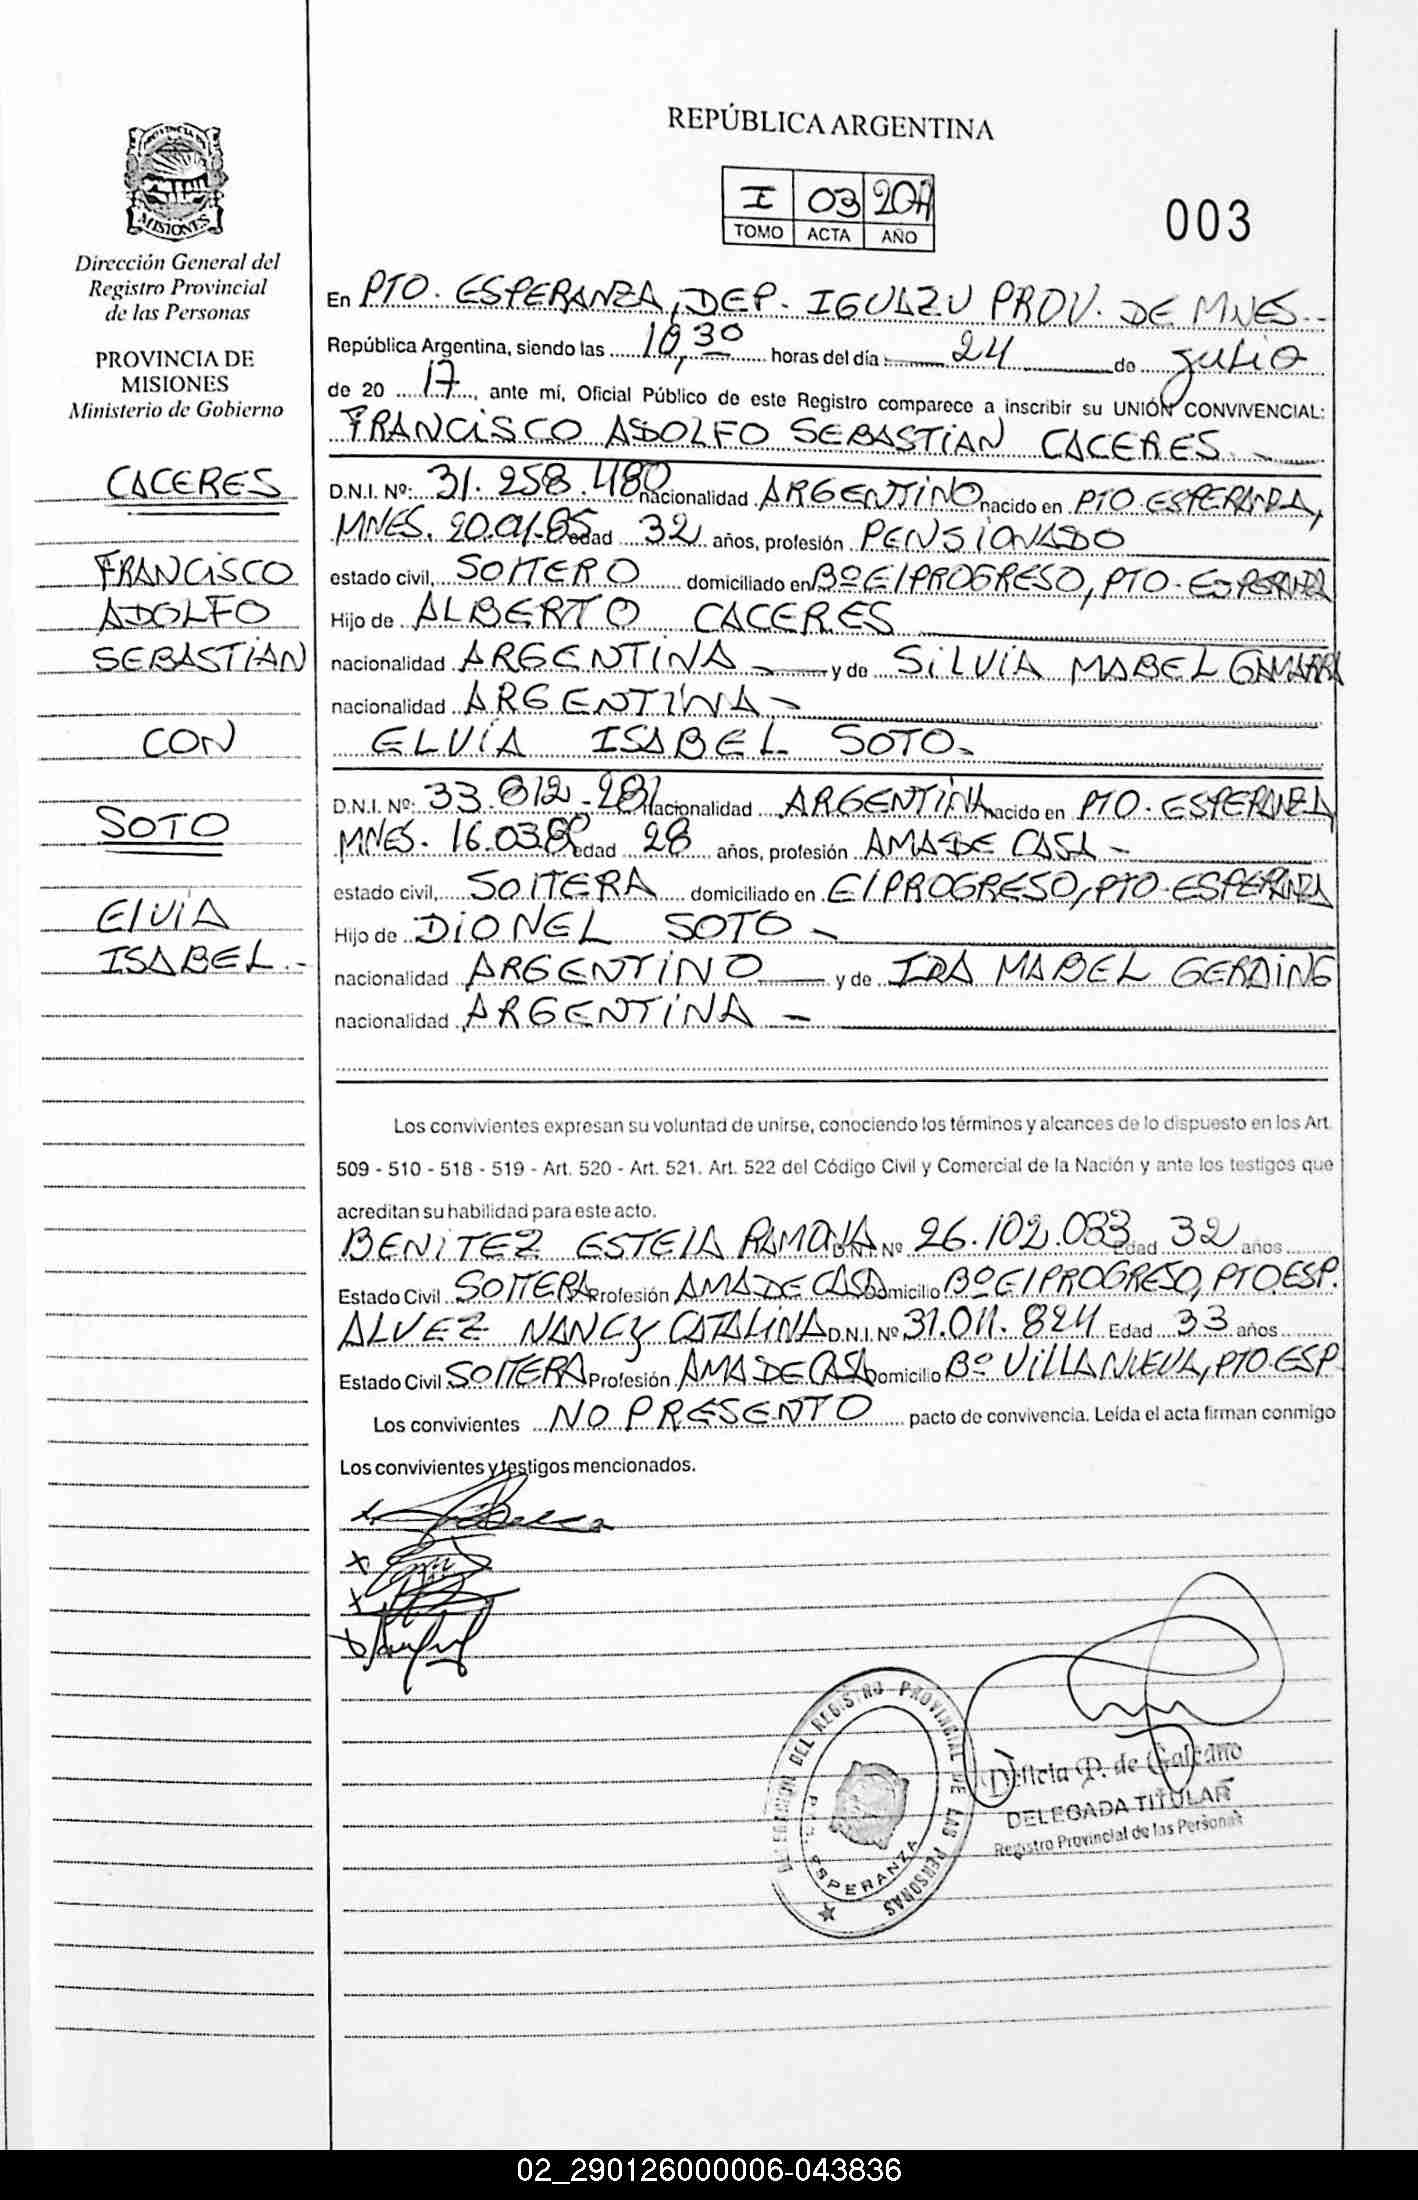 PROVINCIA DE
MISIONES
Dirección General del
Registro Provincial
de las Personas
PROVINCIA DE
MISIONES
Ministerio de Gobierno
CACERES
FRANCISCO
ADOLFO
SEBASTIAN
CON
SOTO
ElViA
ISABEL.-
REPÚBLICA ARGENTINA
I 03 2017
TOMO ACTA AÑO
003
En PTO. ESPERANZA, DEP. IGUAZU PROV. DE MNES.-
República Argentina, siendo las 10,30 horas del día 24 de julio
de 20 17, ante mí, Oficial Público de este Registro comparece a inscribir su UNIÓN CONVIVENCIAL:
FRANCISCO ADOLFO SEBASTIAN CACERES.-
D.N.I. Nº: 31.258.480 nacionalidad ARGENTINO nacido en PTO ESPERANZA,
MNES. 20.01.85 edad 32 años, profesión PENSIONADO
estado civil, SOlTERO domiciliado en Bº El PROGRESO, PTO-ESPERANZA
Hijo de ALBERTO CACERES
nacionalidad ARGENTINA - y de SILVIA MABEL GAMARRA
nacionalidad ARGENTINA -
ELVIA ISABEL SOTO-
D.N.I. Nº: 33.812.281 nacionalidad ARGENTINA nacido en PTO. ESPERANZA
MNES. 16.03.89 edad 28 años, profesión AMA DE CASA -
estado civil, SOlTERA domiciliado en El PROGRESO, PTO-ESPERANZA
Hijo de DIONEL SOTO -
nacionalidad ARGENTINO y de IDA MABEL GERDING
nacionalidad ARGENTINA -
Los convivientes expresan su voluntad de unirse, conociendo los términos y alcances de lo dispuesto en los Art.
509 - 510 - 518 - 519 - Art. 520 - Art. 521. Art. 522 del Código Civil y Comercial de la Nación y ante los testigos que
acreditan su habilidad para este acto.
BENITEZ ESTElA RAMONA D.N.I. Nº 26.102.033 Edad 32 años
Estado Civil SOlTERA Profesión AMA DE CASA Domicilio Bº El PROGRESO, PTO ESP.
ALVEZ NANCY CATALINA D.N.I. Nº 31.011.824 Edad 33 años
Estado Civil SOlTERA Profesión AMA DE CASA Domicilio Bº VILLA NUEVA, PTO-ESP.
Los convivientes NO PRESENTO pacto de convivencia. Leída el acta firman conmigo
Los convivientes y testigos mencionados.
DEL REGISTRO PROVINCIAL DE LAS PERSONAS
ESPERANZA
Delicia P. de Galeano
DELEGADA TITULAR
Registro Provincial de las Personas
02_290126000006-043836